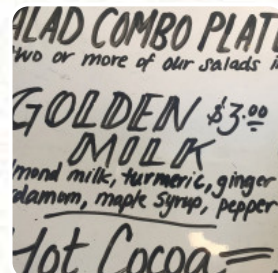 ALAD COMBO PLAT
two or more of our salads i
GOLDEN $3.00
MILK
lmond milk, turmeric, ginger
rdamom, maple syrup, pepper
Hot Cocoa